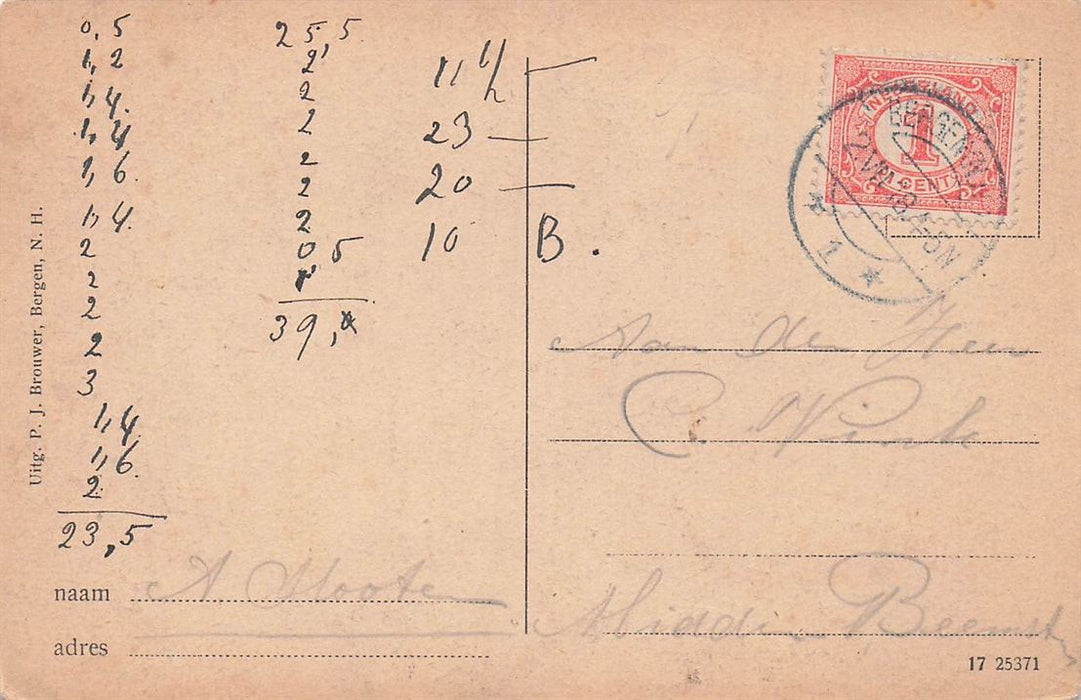 0,5
1,2
1,4.
1,4
1,6.
1,4.
2
2
2
2
3
1,4.
1,6.
2
23,5
25,5
2
2
2
2
2
2
0,5
39,
11 1/2
23
20
10 B.
NEDERLAND
1
CENT
BERGEN
1
Aan den Heer
C. Vink
Midden Beemster
Uitg. P. J. Brouwer, Bergen, N. H.
naam A Sloote
adres
17 25371